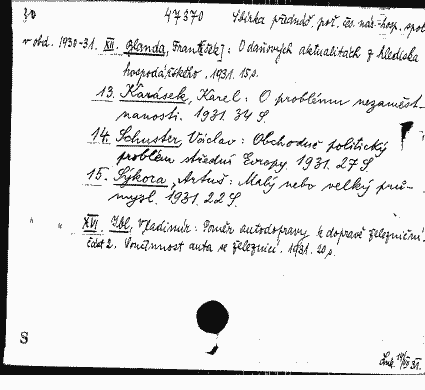 47370 Sbírka přednáš. poř. čes. nár.-hosp. spol.
v obd. 1930-31. XII. Blanda, Frant[išek]: O daňových aktualitách z hlediska
hospodářského. 1931. 15 s.
13. Karásek, Karel: O problému nezaměst-
nanosti. 1931. 34 S.
14. Schuster, Václav: Obchodně politický
problém střední Evropy. 1931. 27 S.
15. Sýkora, Artuš: Malý nebo velký prů-
mysl. 1931. 22 S.
" " XVI. Ibl, Vladimír: Poměr autodopravy k dopravě železniční.
část 2. Součinnost auta se železnicí. 1931. 20 s.
S